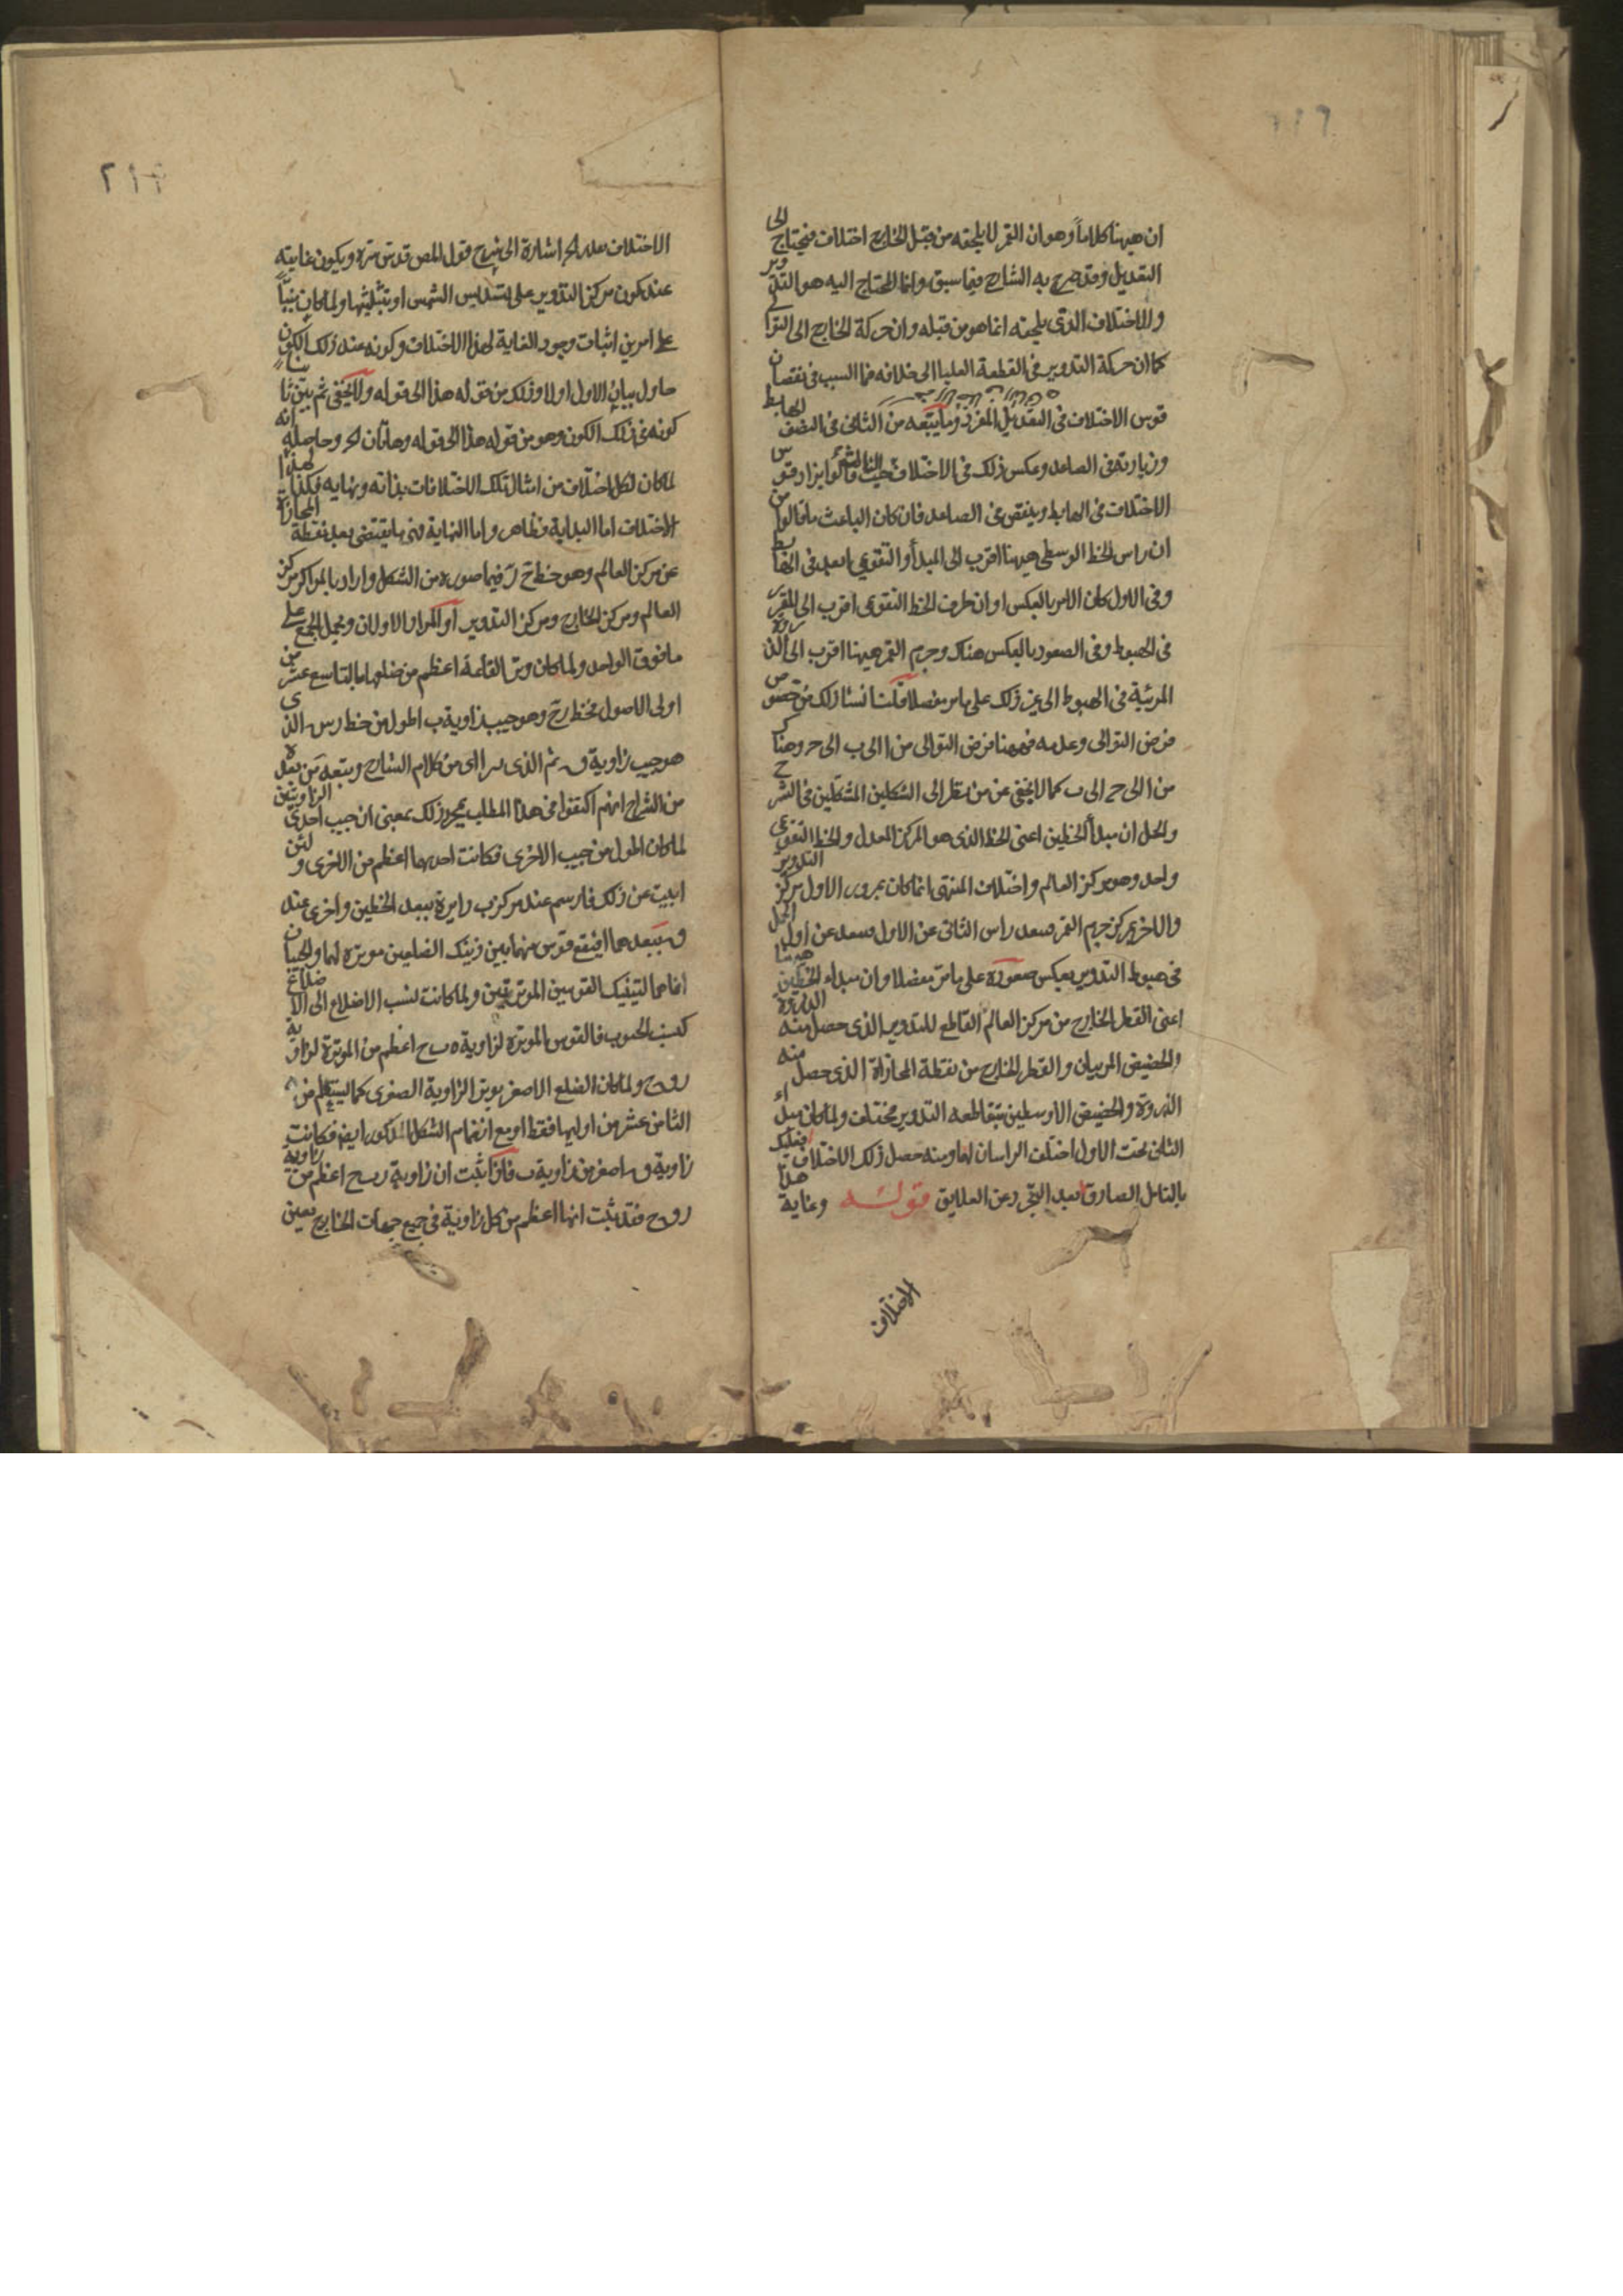 ان ههنا كلاما وهو ان القمر لا يلحقه من قبل الخارج اختلاف فيحتاج الى
التعديل وقد صرح به الشارح فيما سبق وانما المحتاج اليه هو التدوير
والاختلاف الذي يلحقه انما هو من قبله وان حركة الخارج الى التوالى
كما ان حركة التدوير فى القطعة العليا الى خلافه فما السبب فى نقصان
قوس الاختلاف فى التعديل المفرد وما يتبعه من الثانى فى النصف الهابط
وزيادته فى الصاعد وعكس ذلك فى الاختلاف الثالث حيث قالوا يزاد قوس
الاختلاف فى الهابط وينقص فى الصاعد فان كان الباعث ما قالوا من
ان راس الخط الوسطى ههنا اقرب الى المبدأ والتقويمى ابعد فى الهابط
وفى الاول كان الامر بالعكس او ان طرف الخط التقويمى اقرب الى
فى الهبوط وفى الصعود بالعكس هناك وجرم القمر ههنا اقرب الى الذروة
المرئية فى الهبوط الى غير ذلك على ما مر مفصلا قلت انشأ ذلك من خصوص
فرض التوالى وعدمه فههنا فرض التوالى من ا الى ب الى ح وهناك
من ا الى ح الى ب كما لا يخفى عن من نظر الى الشكلين المشكلين فى الشرح
والحل ان مبدأ الخطين اعنى الخط الذى هو المركز المعدل والخط التقويمى
واحد وهو مركز العالم واختلاف المنتهى انما كان بمرور الاول بمركز التدوير
والاخر بمركز جرم القمر فبعد راس الثانى عن الاول فبعد عن اول الحمل
فى هبوط التدوير بعكس صعوده على ما مر مفصلا وان مبداء الخطين ههنا
اعنى القطر الخارج من مركز العالم القاطع للتدوير الذى حصل منه الذروة
والحضيض المرئيان والقطر الخارج من نقطة المحاذاة الذى حصل منه
الذروة والحضيض الاوسطين بتقاطعه التدوير مختلف ولما كان مبداء
الثانى تحت الاول اختلف الراسان لهما ومنه حصل ذلك الاختلاف فعليك
بالتامل الصادق بعد التجرد عن العلايق قوله وغاية هذا
الاختلاف
الاختلاف بعد الخ اشارة الى شرح قول المص قدس سره ويكون غايته
عند كون مركز التدوير على تسديس الشمس او تثليثها ولما كان مبنيا
على امرين اثبات وجود الغاية لهذا الاختلاف وكونه عند ذلك الكون
حاول بيان الاول اولا وذلك من قوله هذا الى قوله ولا يخفى ثم بين ثانيا
كونه فى ذلك الكون وهو من قوله هذا الى قوله وهاتان الخ وحاصله انه
لما كان لكل اختلاف من امثال تلك الاختلافات بداية ونهاية فكذا لهذا
الاختلاف اما البداية فظاهر واما النهاية فهى ما يقتضى بعد نقطة المحاذاة
عن مركز العالم وهو خط ح ر فيما صوره من الشكل واراد بالمراكز مركز
العالم ومركز الخارج ومركز التدوير او المراد الاولان ويحمل الجمع على
ما فوق الواحد ولما كان وتر القائمة اعظم من ضلعها بالتاسع عشر من
اولى الاصول فخط رح وهو جيب زاوية ب اطول من خط رس الذى
هو جيب زاوية ق ثم الذى يراى من كلام الشارح وتبعه من بعده
من الشراح انهم اكتفوا فى هذا المطلب بمجرد ذلك بمعنى ان جيب احدى الزاويتين
لما كان اطول من جيب الاخرى فكانت احديهما اعظم من الاخرى ولئن
ابيت عن ذلك فارسم عند مركز ب دايرة ببعد الخطين واخرى عند
ق ببعدهما فيقع قوس منهما بين ذينك الضلعين موترة لهما والجيبان
انما هما لتينك القوسين الموترتين ولما كانت نسب الاضلاع الى الاضلاع
كنسب الجيوب فالقوس الموترة لزاوية ه ب ح اعظم من الموترة لزاوية
ر و ح ولما كان الضلع الاصغر يوتر الزاوية الصغرى كما يستعلم من
الثامن عشر من اوليها فقط او مع انضمام الشكل المذكور ايضا فكانت
زاوية ق اصغر من زاوية ب فاذا ثبت ان زاوية ر ب ح اعظم من زاوية
ر و ح فقد ثبت انها اعظم من كل زاوية فى جميع جهات الخارج بعين